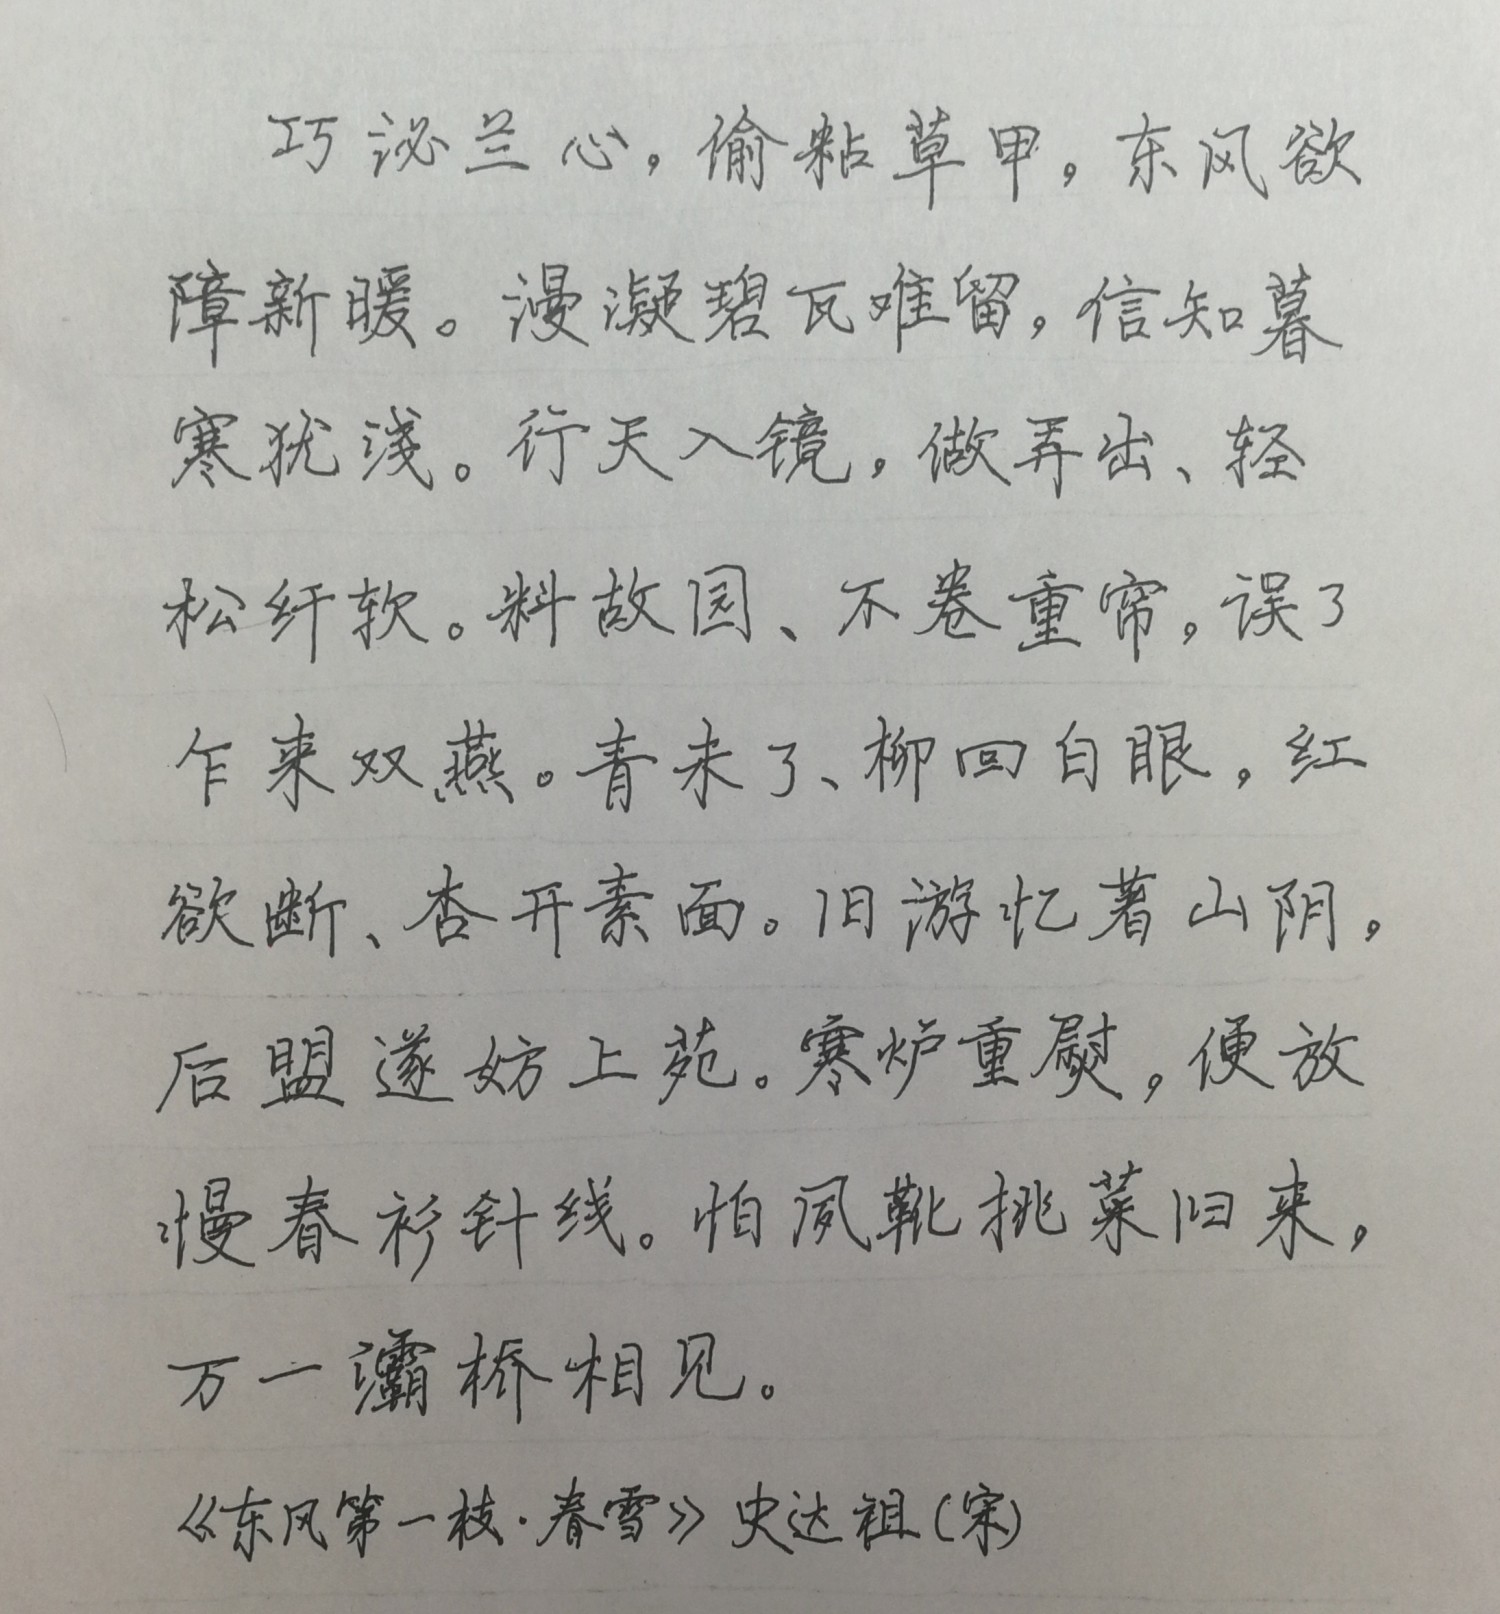 巧泌兰心，偷粘草甲，东风欲
障新暖。漫凝碧瓦难留，信知暮
寒犹浅。行天入镜，做弄出、轻
松纤软。料故园、不卷重帘，误了
乍来双燕。青未了、柳回白眼，红
欲断、杏开素面。旧游忆著山阴，
后盟遂妨上苑。寒炉重熨，便放
慢春衫针线。怕凤靴挑菜归来，
万一灞桥相见。
《东风第一枝·春雪》史达祖（宋）